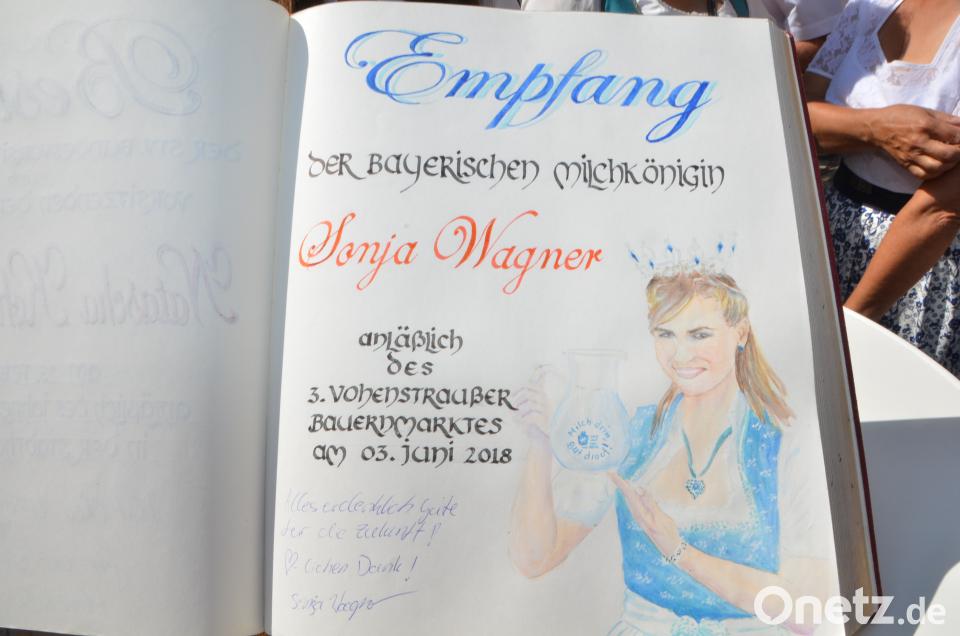 Empfang
der Bayerischen Milchkönigin
Sonja Wagner
anläßlich
des
3. Vohenstraußer
Bauernmarktes
am 03. Juni 2018
Alles erdenklich Gute
für die Zukunft!
♡-lichen Dank!
Sonja Wagner
Milch drin
gut drauf!
Onetz.de